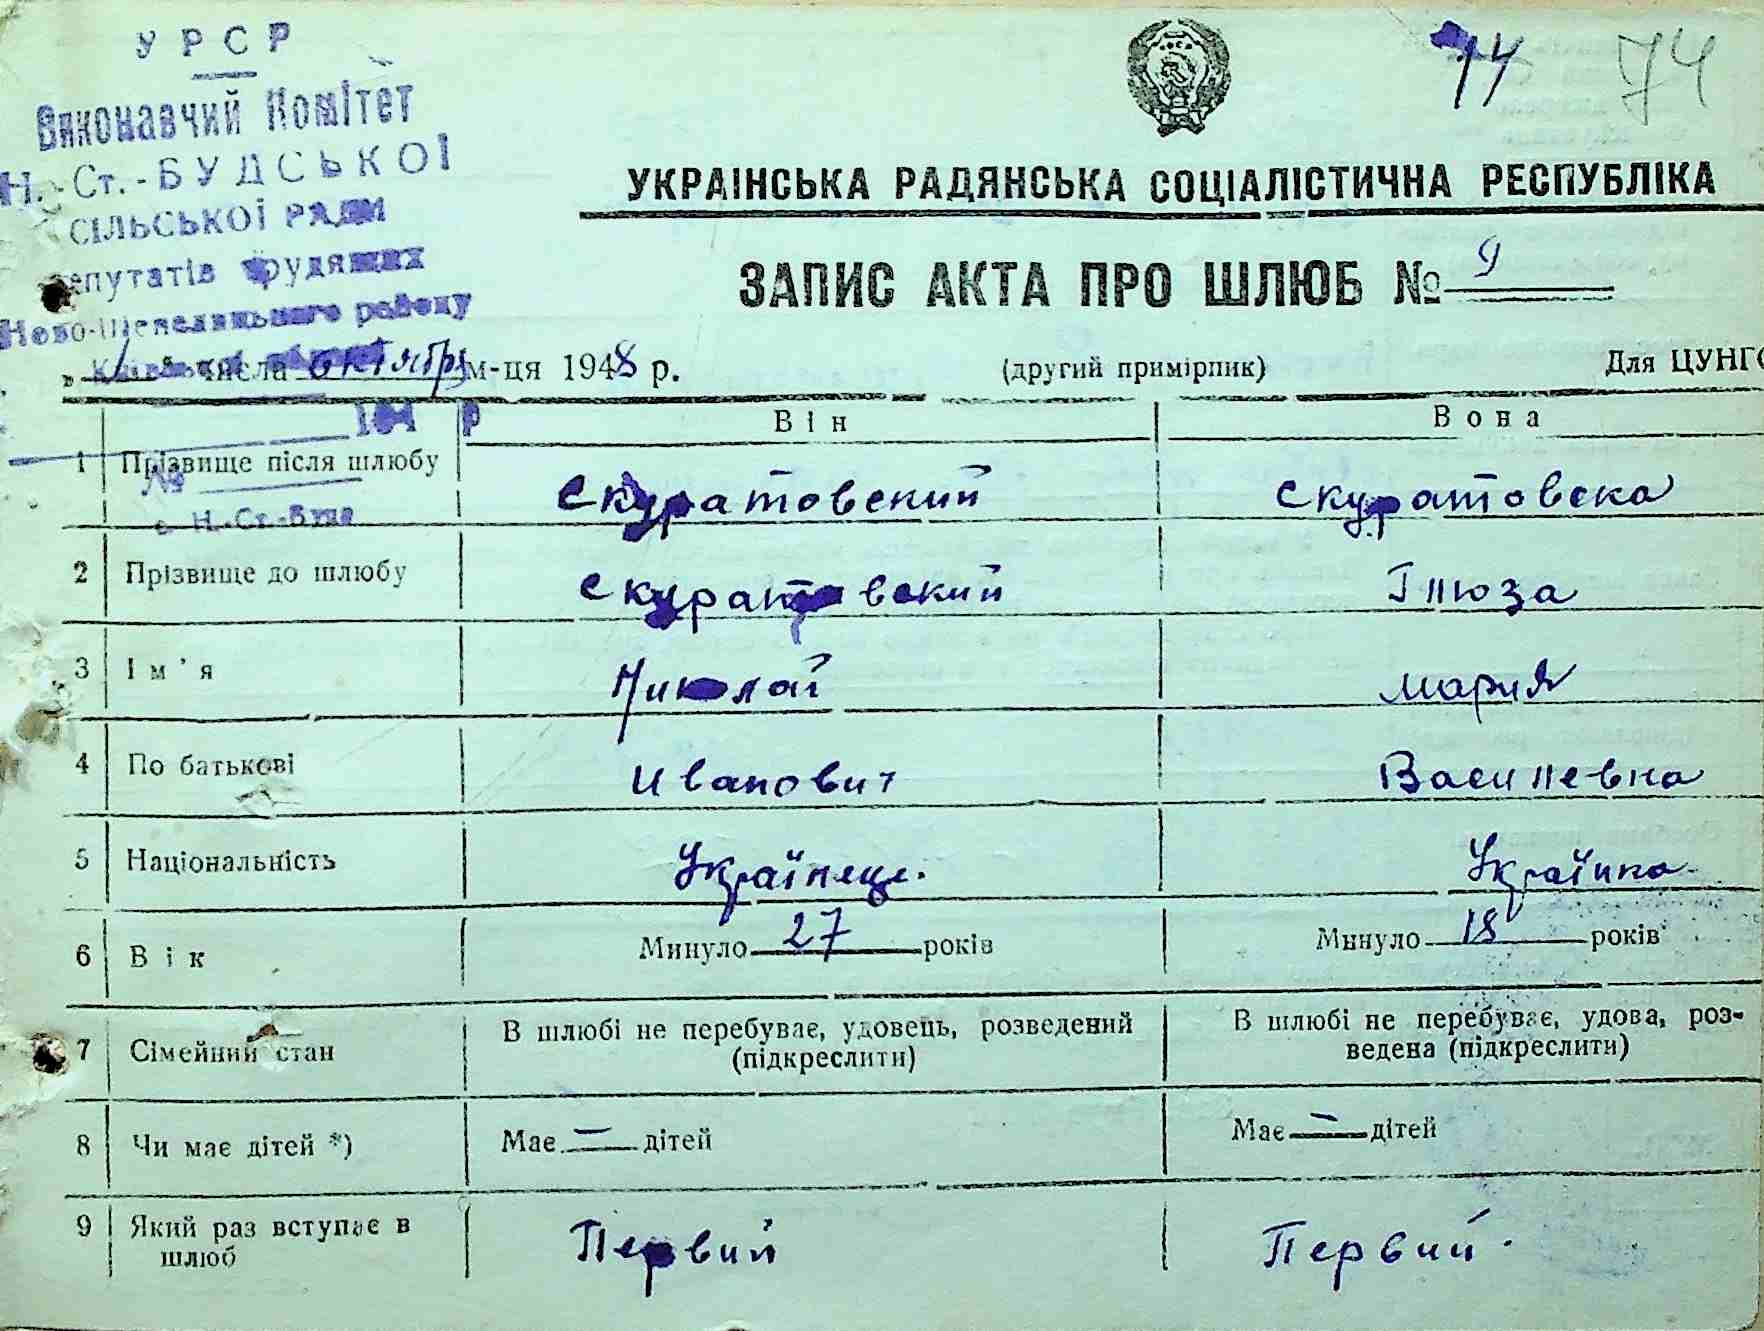 УРСР
Виконавчий Комітет
Н.-Ст.-БУДСЬКОЇ
СІЛЬСЬКОЇ РАДИ
депутатів трудящих
Ново-Шепелицького району
74 74
УКРАЇНСЬКА РАДЯНСЬКА СОЦІАЛІСТИЧНА РЕСПУБЛІКА
ЗАПИС АКТА ПРО ШЛЮБ № 9
„ 1 " числа октября м-ця 1948 р. (другий примірпик) Для ЦУНГО
194 р
№
с. Н.-Ст.-Буда
Він Вона
1 Прізвище після шлюбу Скуратовский Скуратовска
2 Прізвище до шлюбу Скуратовский Гпюза
3 Ім'я Николай Мария
4 По батькові Иванович Василевна
5 Національність Українець. Українка
6 Вік Минуло 27 років Минуло 18 років
7 Сімейний стан В шлюбі не перебуває, удовець, розведений (підкреслити) В шлюбі не перебуває, удова, роз-
ведена (підкреслити)
8 Чи має дітей *) Має — дітей Має — дітей
9 Який раз вступає в
шлюб Первий Первий.